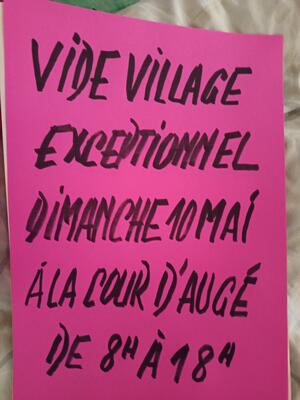 VIDE VILLAGE
EXCEPTIONNEL
DIMANCHE 10 MAI
À LA COUR D'AUGÉ
DE 8H À 18H